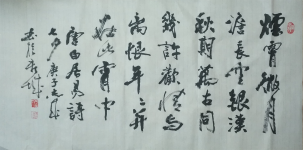 煙霄微月
澹長空銀漢
秋期萬古同
幾許歡情与
离恨年々并
在此宵中
唐白居易詩
七夕庚子